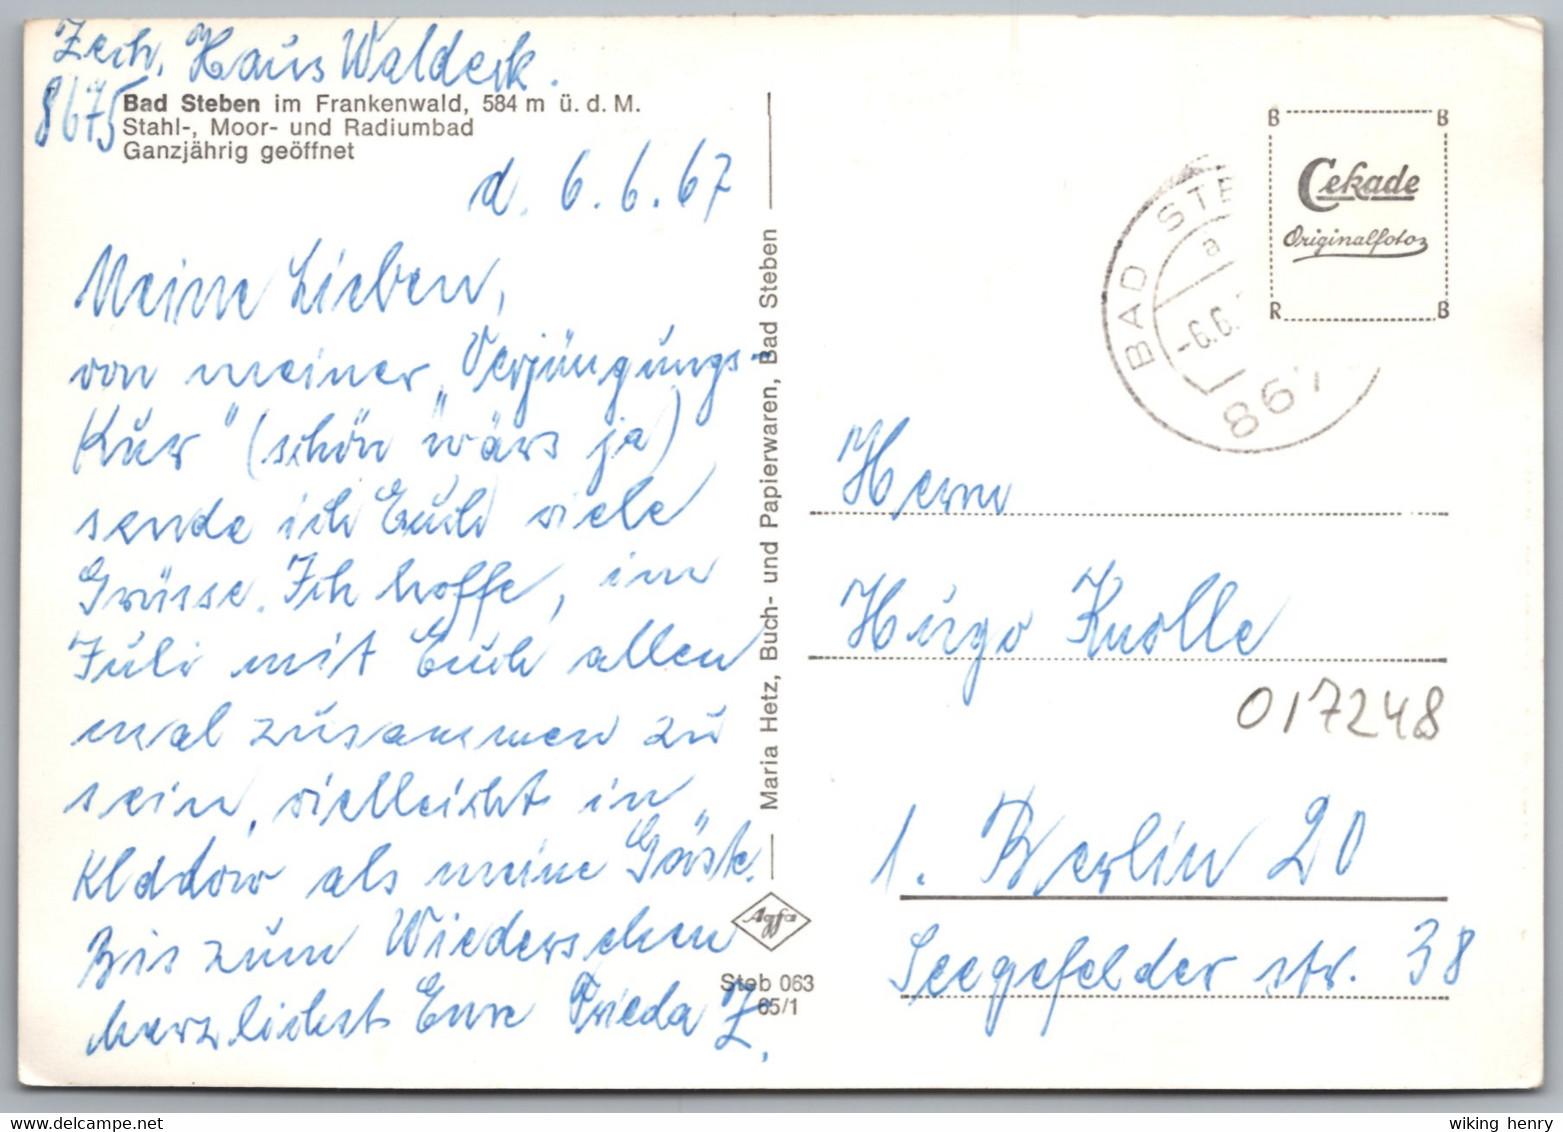 Zech, Haus Waldeck.
8675
Bad Steben im Frankenwald, 584 m ü. d. M.
Stahl-, Moor- und Radiumbad
Ganzjährig geöffnet
d. 6.6.67
Meine Lieben,
von meiner „Verjüngungs-
Kur" (schön wärs ja)
sende ich Euch viele
Grüsse. Ich hoffe, im
Juli mit Euch allen
mal zusammen zu
sein, vielleicht in
Kladow als meine Gäste.
Bis zum Wiedersehen
herzlichst Eure Frieda Z.
Maria Hetz, Buch- und Papierwaren, Bad Steben
Agfa
Steb 063
65/1
BAD STE
a
-6.6.
867
B B
Cekade
Originalfoto
R B
Herrn
Hugo Knolle
017248
1. Berlin 20
Seegefelder str. 38
wiking henry